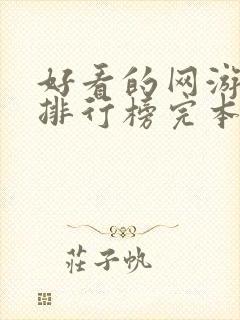 好看的网游
排行榜完本
莊子帆